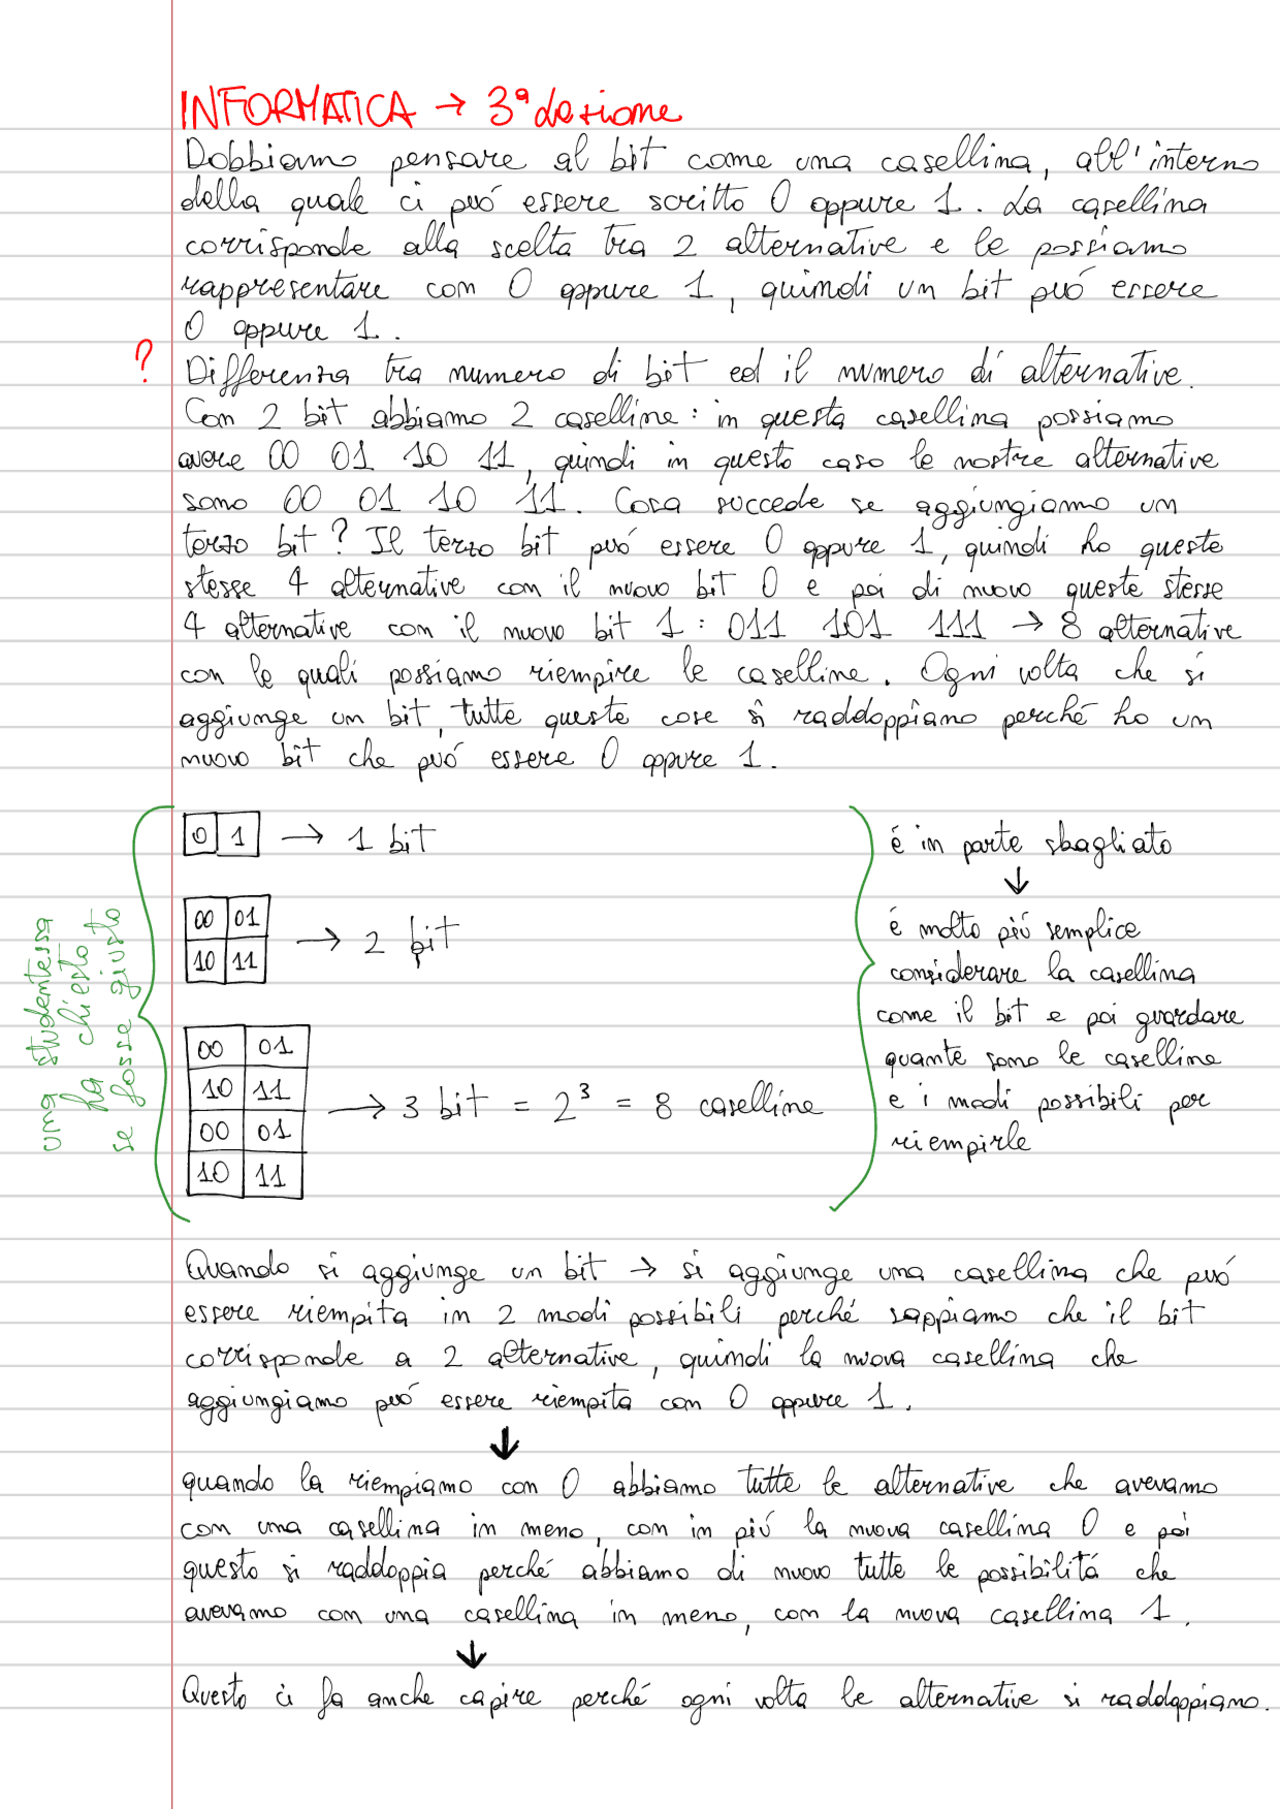 INFORMATICA → 3ª Lezione
Dobbiamo pensare al bit come una casellina, all'interno
della quale ci può essere scritto 0 oppure 1. La casellina
corrisponde alla scelta tra 2 alternative e le possiamo
rappresentare con 0 oppure 1, quindi un bit può essere
0 oppure 1.
? Differenza tra numero di bit ed il numero di alternative.
Con 2 bit abbiamo 2 caselline: in questa casellina possiamo
avere 00 01 10 11, quindi in questo caso le nostre alternative
sono 00 01 10 11. Cosa succede se aggiungiamo un
terzo bit? Il terzo bit può essere 0 oppure 1, quindi ho queste
stesse 4 alternative con il nuovo bit 0 e poi di nuovo queste stesse
4 alternative con il nuovo bit 1: 011 101 111 → 8 alternative
con le quali possiamo riempire le caselline. Ogni volta che si
aggiunge un bit, tutte queste cose si raddoppiano perché ho un
nuovo bit che può essere 0 oppure 1.
una studentessa
ha chiesto
se fosse giusto
0 1 → 1 bit
00 01
10 11
→ 2 bit
00 01
10 11
00 01
10 11
→ 3 bit = 2³ = 8 caselline
é in parte sbagliato
↓
é molto più semplice
considerare la casellina
come il bit e poi guardare
quante sono le caselline
e i modi possibili per
riempirle
Quando si aggiunge un bit → si aggiunge una casellina che può
essere riempita in 2 modi possibili perché sappiamo che il bit
corrisponde a 2 alternative, quindi la nuova casellina che
aggiungiamo può essere riempita con 0 oppure 1.
↓
quando la riempiamo con 0 abbiamo tutte le alternative che avevamo
con una casellina in meno, con in più la nuova casellina 0 e poi
questo si raddoppia perché abbiamo di nuovo tutte le possibilitá che
avevamo con una casellina in meno, con la nuova casellina 1.
↓
Questo ci fa anche capire perché ogni volta le alternative si raddoppiano.